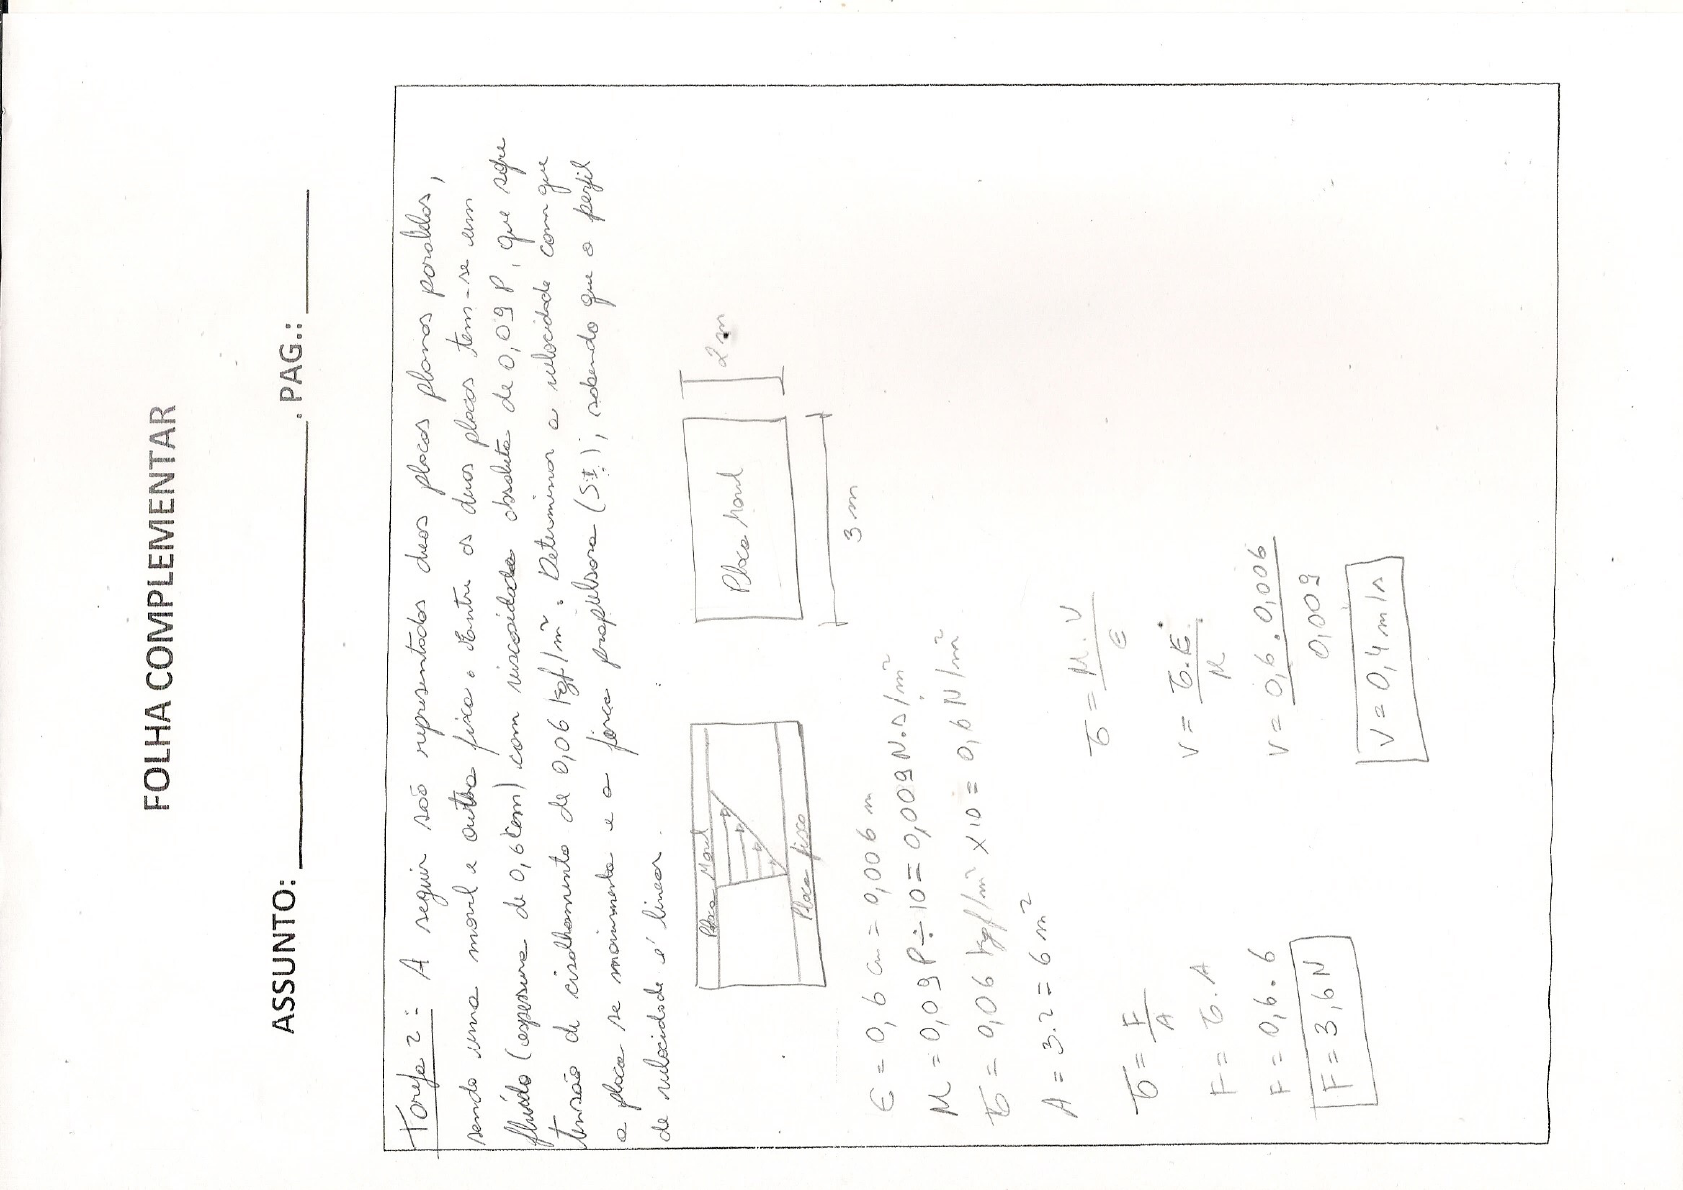 FOLHA COMPLEMENTAR
ASSUNTO: ____________ . PAG.: ______
Tarefa 2: A seguir são representadas duas placas planas paralelas,
sendo uma móvel e outra fixa. Entre as duas placas tem-se um
fluído (espessura de 0,6 cm) com viscosidade absoluta de 0,09 P, que sofre
tensão de cisalhamento de 0,06 kgf/m². Determinar a velocidade com que
a placa se movimenta e a força propulsora (S.I.), sabendo que o perfil
de velocidade é linear.
Placa Móvel
Placa fixa
Placa Móvel
2 m
3 m
Є = 0,6 cm = 0,006 m
M = 0,09 P ÷ 10 = 0,009 N.s/m²
σ = 0,06 kgf/m² x 10 = 0,6 N/m²
A = 3.2 = 6 m²
σ = F/A
F = σ.A
F = 0,6.6
F = 3,6 N
σ = M.V/Є
V = σ.Є/M
V = 0,6.0,006/0,009
V = 0,4 m/s